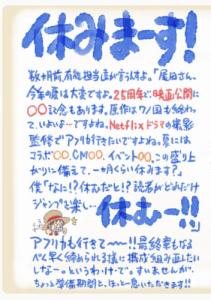 休みまーす!
数ヶ月前、有能担当が言うんすよ。「尾田さん、
今年の夏は大変ですよ。25周年と映画公開に
〇〇記念もあります。原作はワノ国も終わっ
て、いよいよーですよね。Netflixドラマの撮影
監修でアフリカ行きたいですよね。夏には
コラボ〇〇、CM〇〇、イベント〇〇、この盛り上
がりに備えて、一か月くらい休みます?」
僕「なに!?休むだと!?読者がどれだけ
ジャンプを楽しー 休むー!!」
アフリカも行きてェ〜〜!!最終章もなる
べく早く締められる様に構成組み直したい
しなー。というわけで。すいませんが、
ちょっと準備期間と、ほっと一息いただきます!!